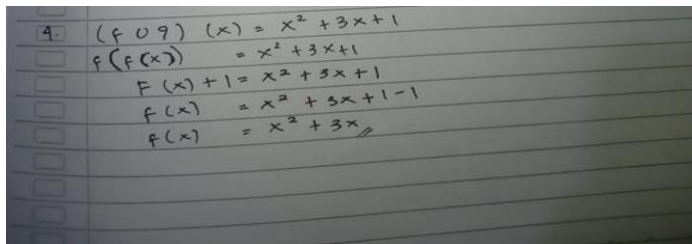 4. (f o g) (x) = x² + 3x + 1
f(f(x)) = x² + 3x + 1
F(x) + 1 = x² + 3x + 1
f(x) = x² + 3x + 1 - 1
f(x) = x² + 3x //